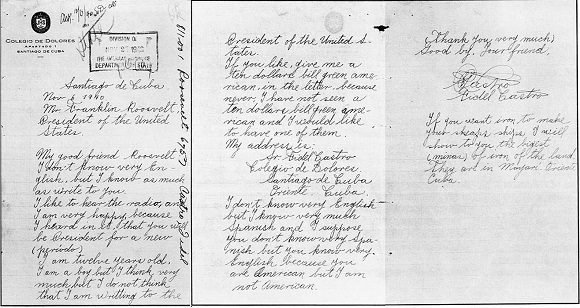 COLEGIO DE DOLORES
APARTADO 1
SANTIAGO DE CUBA
DIVISION O
DEPARTMENT STATE
Santiago de Cuba
Nov 6 1940
Mr Franklin Roosvelt,
President of the United
States
My good friend Roosvelt
I don't know very En
glish, but I know as much
as write to you.
I like to hear the radio, and
I am very happy, because
I heard in it, that you will
be President for a new
(periodo)
I am twelve years old.
I am a boy but I think very
much but I do not think
that I am writting to the
President of the United S-
tates.
If you like, give me a
ten dollars bill green ame-
rican, in the letter, because
never, I have not seen a
ten dollars bill green ame-
rican and I would like
to have one of them.
My address is:
Sr Fidel Castro
Colegio de Dolores
Santiago de Cuba
Oriente Cuba
I don't know very English
but I know very much
Spanish and I suppose
you don't know very Spa-
nish but you know very
English because you
are American but I am
not American.
(Thank you very much)
Good by. Your friend,
Castro
Fidel Castro
If you want iron to make
your sheaps ships I will
show to you the bigest
(minas) of iron of the land.
They are in Mayari Oriente
Cuba.